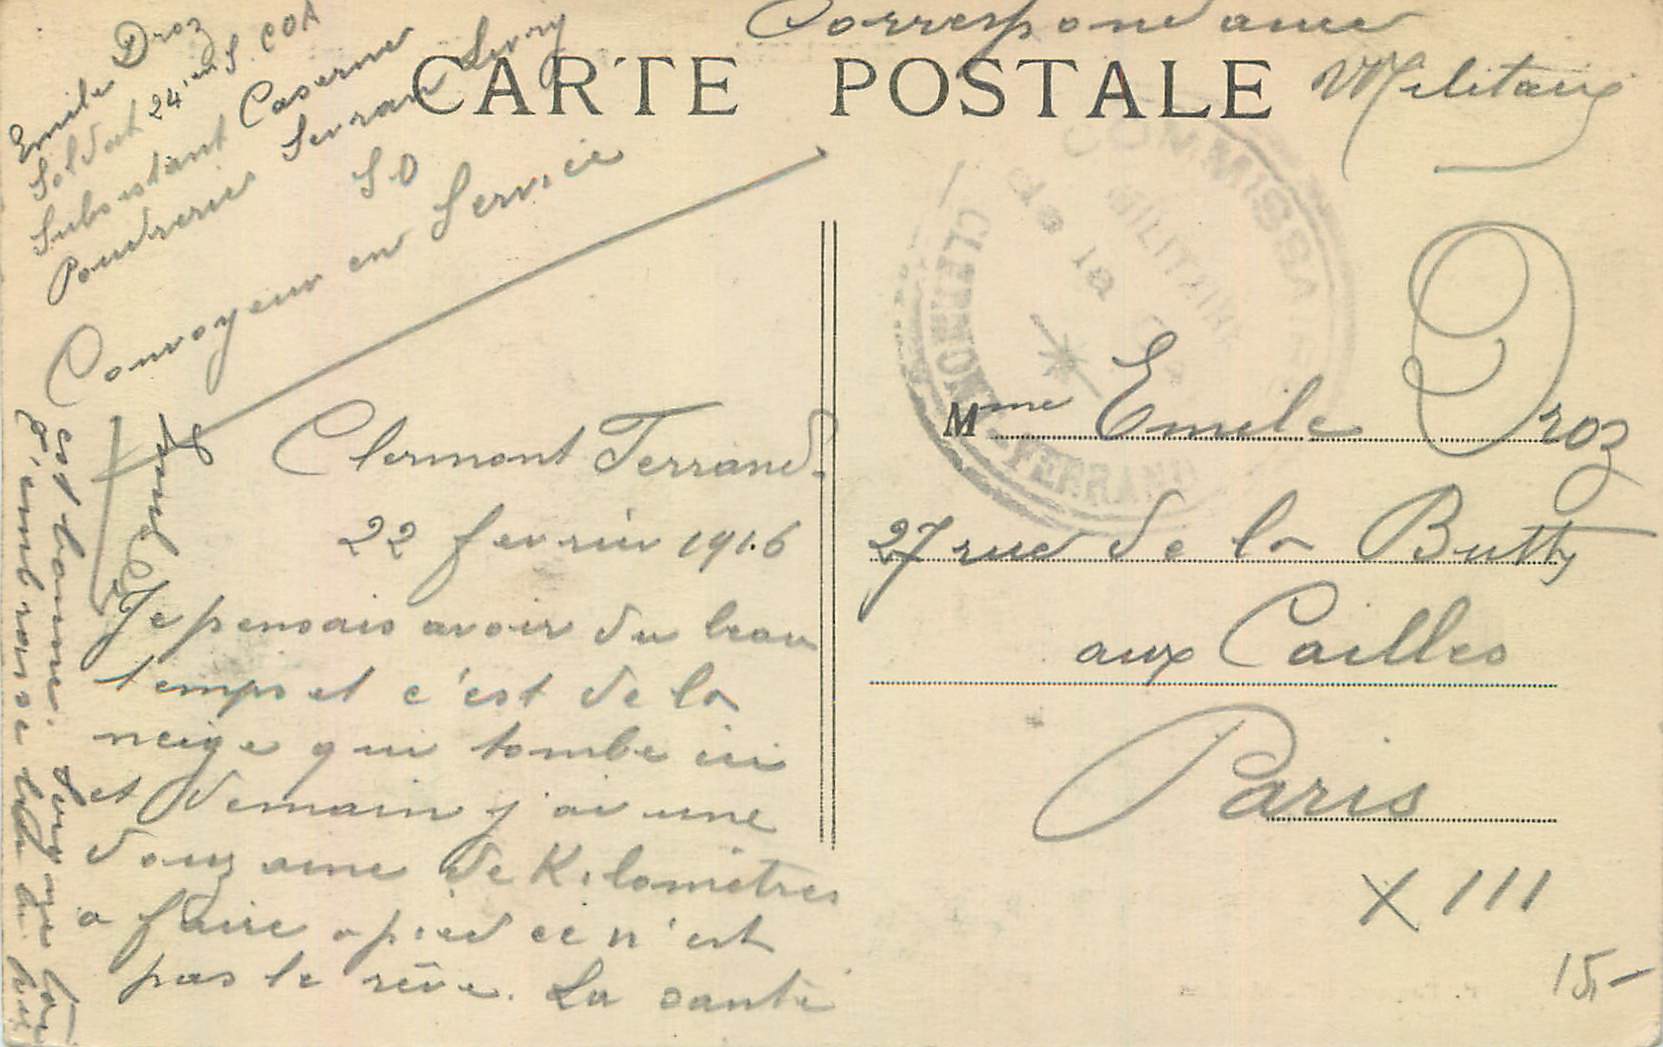 Correspondance
Militaire
CARTE POSTALE
Emile Droz
Soldat 24em S. COA
Subsistant Caserne
Poudrerie Sevran Livry
S O
Convoyeur en Service
COMMISSAIRE
MILITAIRE
de la
CLERMONT-FERRAND
Clermont Ferrand.
22 fevrier 1916
Je pensais avoir du beau
temps et c'est de la
neige qui tombe ici
et demain j'ai une
douzaine de Kilomètres
a faire a pied ce n'est
pas le rêve. La santé
est bonne.
t'embrasse
Mme Emile Droz
27 rue de la Butte
aux Cailles
Paris
XIII
15,-